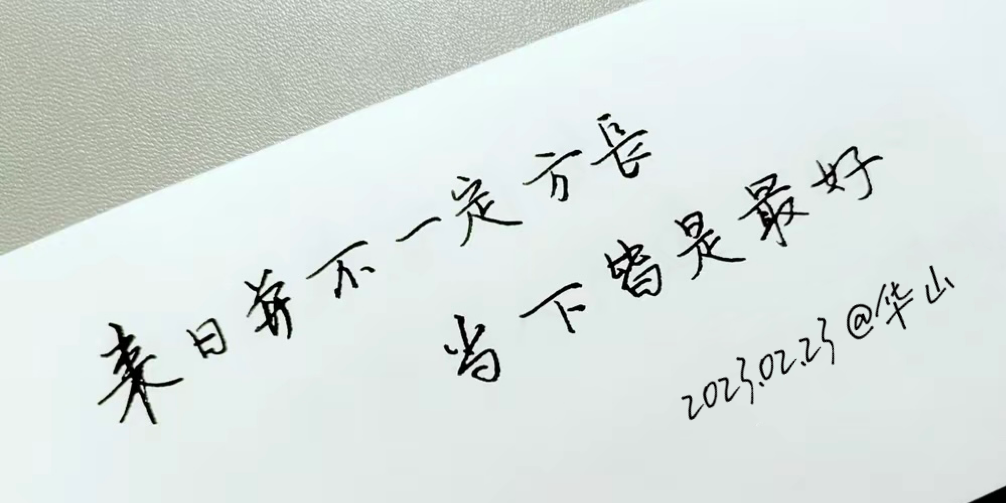 来日并不一定方長
当下皆是最好
2023.02.23@华山